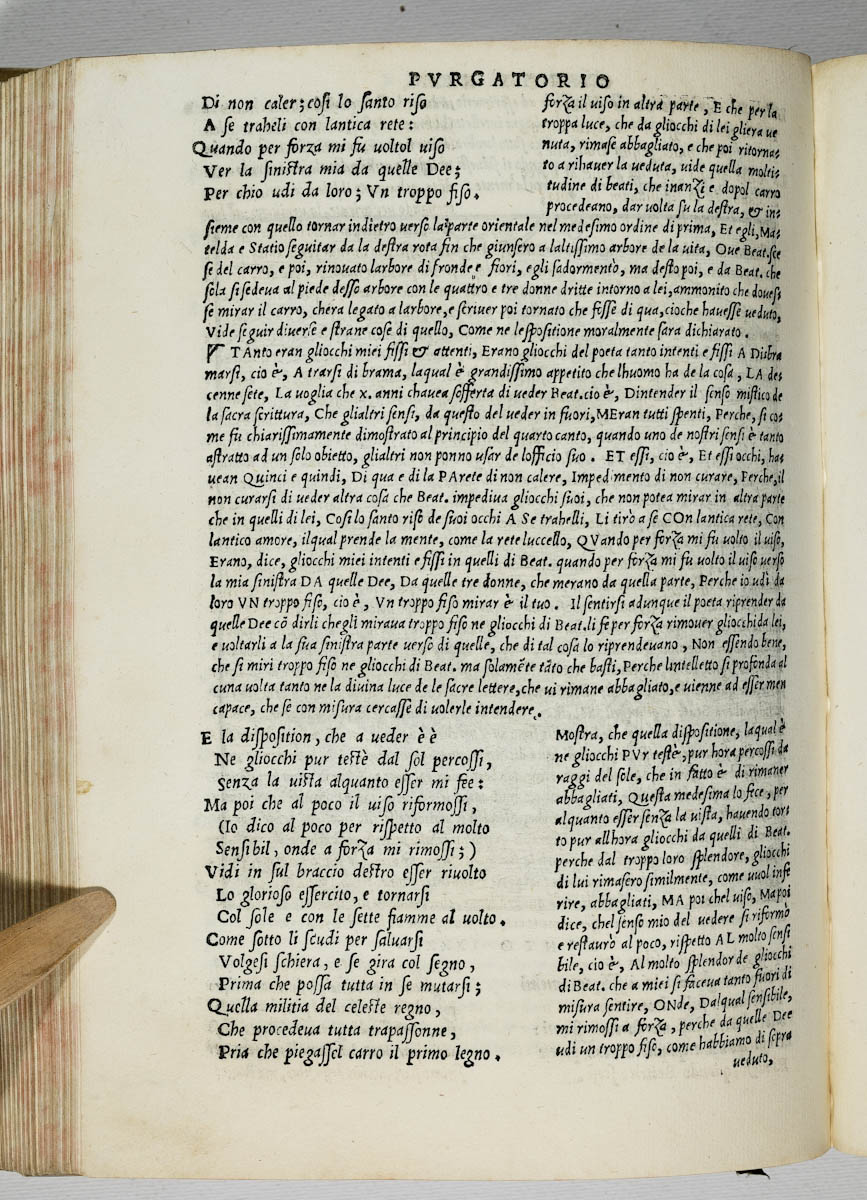 PVRGATORIO
Di non caler; cosi lo santo riso
A se traheli con lantica rete:
Quando per forza mi fu voltol uiso
Ver la sinistra mia da quelle Dee;
Per chio udi da loro; Vn troppo fiso.
forza il uiso in altra parte, E che per la
troppa luce, che da gliocchi di lei gliera ue
nuta, rimase abbagliato, e che poi ritorna-
to a rihauer la ueduta, uide quella molti-
tudine di beati, che inanzi e dopol carro
procedeano, dar volta su la destra, & in-
sieme con quello tornar indietro uerso la parte orientale nel medesimo ordine di prima, Et egli, Ma-
telda e Statio seguitar da la destra rota fin che giunsero a laltissimo arbore de la uita, Oue Beat. sce
se del carro, e poi, rinouato larbore di fronde e fiori, egli sadormentò, ma desto poi, e da Beat. che
sola si sedeua al piede desso arbore con le quattro e tre donne dritte intorno a lei, ammonito che douess
se mirar il carro, chera legato a larbore, e scriuer poi tornato che fosse di qua, cioche hauesse ueduto,
Vide seguir diuerse e strane cose di quello, Come ne lespositione moralmente sara dichiarato.
TAnto eran gliocchi miei fissi & attenti, Erano gliocchi del poeta tanto intenti e fissi A Disbra
marsi, cio è, A trarsi di brama, laqual è grandissimo appetito che lhuomo ha de la cosa, LA de
cenne sete, La uoglia che x. anni chauea sofferta di ueder Beat. cio è, Dintender il senso mistico de
la sacra scrittura, Che glialtri sensi, da questo del ueder in fuori, MEran tutti spenti, Perche, si co
me fu chiarissimamente dimostrato al principio del quarto canto, quando uno de nostri sensi è tanto
astratto ad un solo obietto, glialtri non ponno usar de lofficio suo. ET essi, cio è, Et essi occhi, ha-
uean Quinci e quindi, Di qua e di la PArete di non calere, Impedimento di non curare, Perche, il
non curarsi di ueder altra cosa che Beat. impediua gliocchi suoi, che non potea mirar in altra parte
che in quelli di lei, Cosi lo santo riso de suoi occhi A Se trahelli, Li tirò a se COn lantica rete, Con
lantico amore, ilqual prende la mente, come la rete luccello, QVando per forza mi fu uolto il uiso,
Erano, dice, gliocchi miei intenti e fissi in quelli di Beat. quando per forza mi fu uolto il uiso uerso
la mia sinistra DA quelle Dee, Da quelle tre donne, che merano da quella parte, Perche io udi da
loro VN troppo fiso, cio è, Vn troppo fiso mirar è il tuo. Il sentirsi adunque il poeta riprender da
quelle Dee cō dirli chegli miraua troppo fiso ne gliocchi di Beat. li fe per forza rimouer gliocchi da lei,
e uoltarli a la sua sinistra parte uerso di quelle, che di tal cosa lo riprendeuano, Non essendo bene,
che si miri troppo fiso ne gliocchi di Beat. ma solamēte tāto che basti, Perche lintelletto si profonda al
cuna uolta tanto ne la diuina luce de le sacre lettere, che ui rimane abbagliato, e uienne ad esser men
capace, che se con misura cercasse di uolerle intendere.
E la disposition, che a ueder è è
Ne gliocchi pur testè dal sol percossi,
Senza la uista alquanto esser mi fee:
Ma poi che al poco il uiso riformossi,
(Io dico al poco per rispetto al molto
Sensibil, onde a forza mi rimossi;)
Vidi in sul braccio destro esser riuolto
Lo glorioso essercito, e tornarsi
Col sole e con le sette fiamme al uolto.
Come sotto li scudi per saluarsi
Volgesi schiera, e se gira col segno,
Prima che possa tutta in se mutarsi;
Quella militia del celeste regno,
Che procedeua tutta trapassonne,
Pria che piegassel carro il primo legno.
Mostra, che quella dispositione, laqual è
ne gliocchi PVr testè, pur hora percossi da
raggi del sole, che in fatto è di rimaner
abbagliati, Questa medesima lo fece, per
alquanto esser senza la uista, hauendo tort
to pur allhora gliocchi da quelli di Beat.
perche dal troppo loro splendore, gliocchi
di lui rimasero similmente, come uuol infe
rire, abbagliati, MA poi chel uiso, Ma poi
dice, chel senso mio del vedere si riformò
e restaurò al poco, rispetto AL molto sensi
bile, cio è, Al molto splendor de gliocchi
di Beat. che a miei si faceua tanto fuori di
misura sentire, ONde, Dalqual sensibile,
mi rimossi a forza, perche da quelle Dee
udi un troppo fiso, come habbiamo di sopra
ueduto,